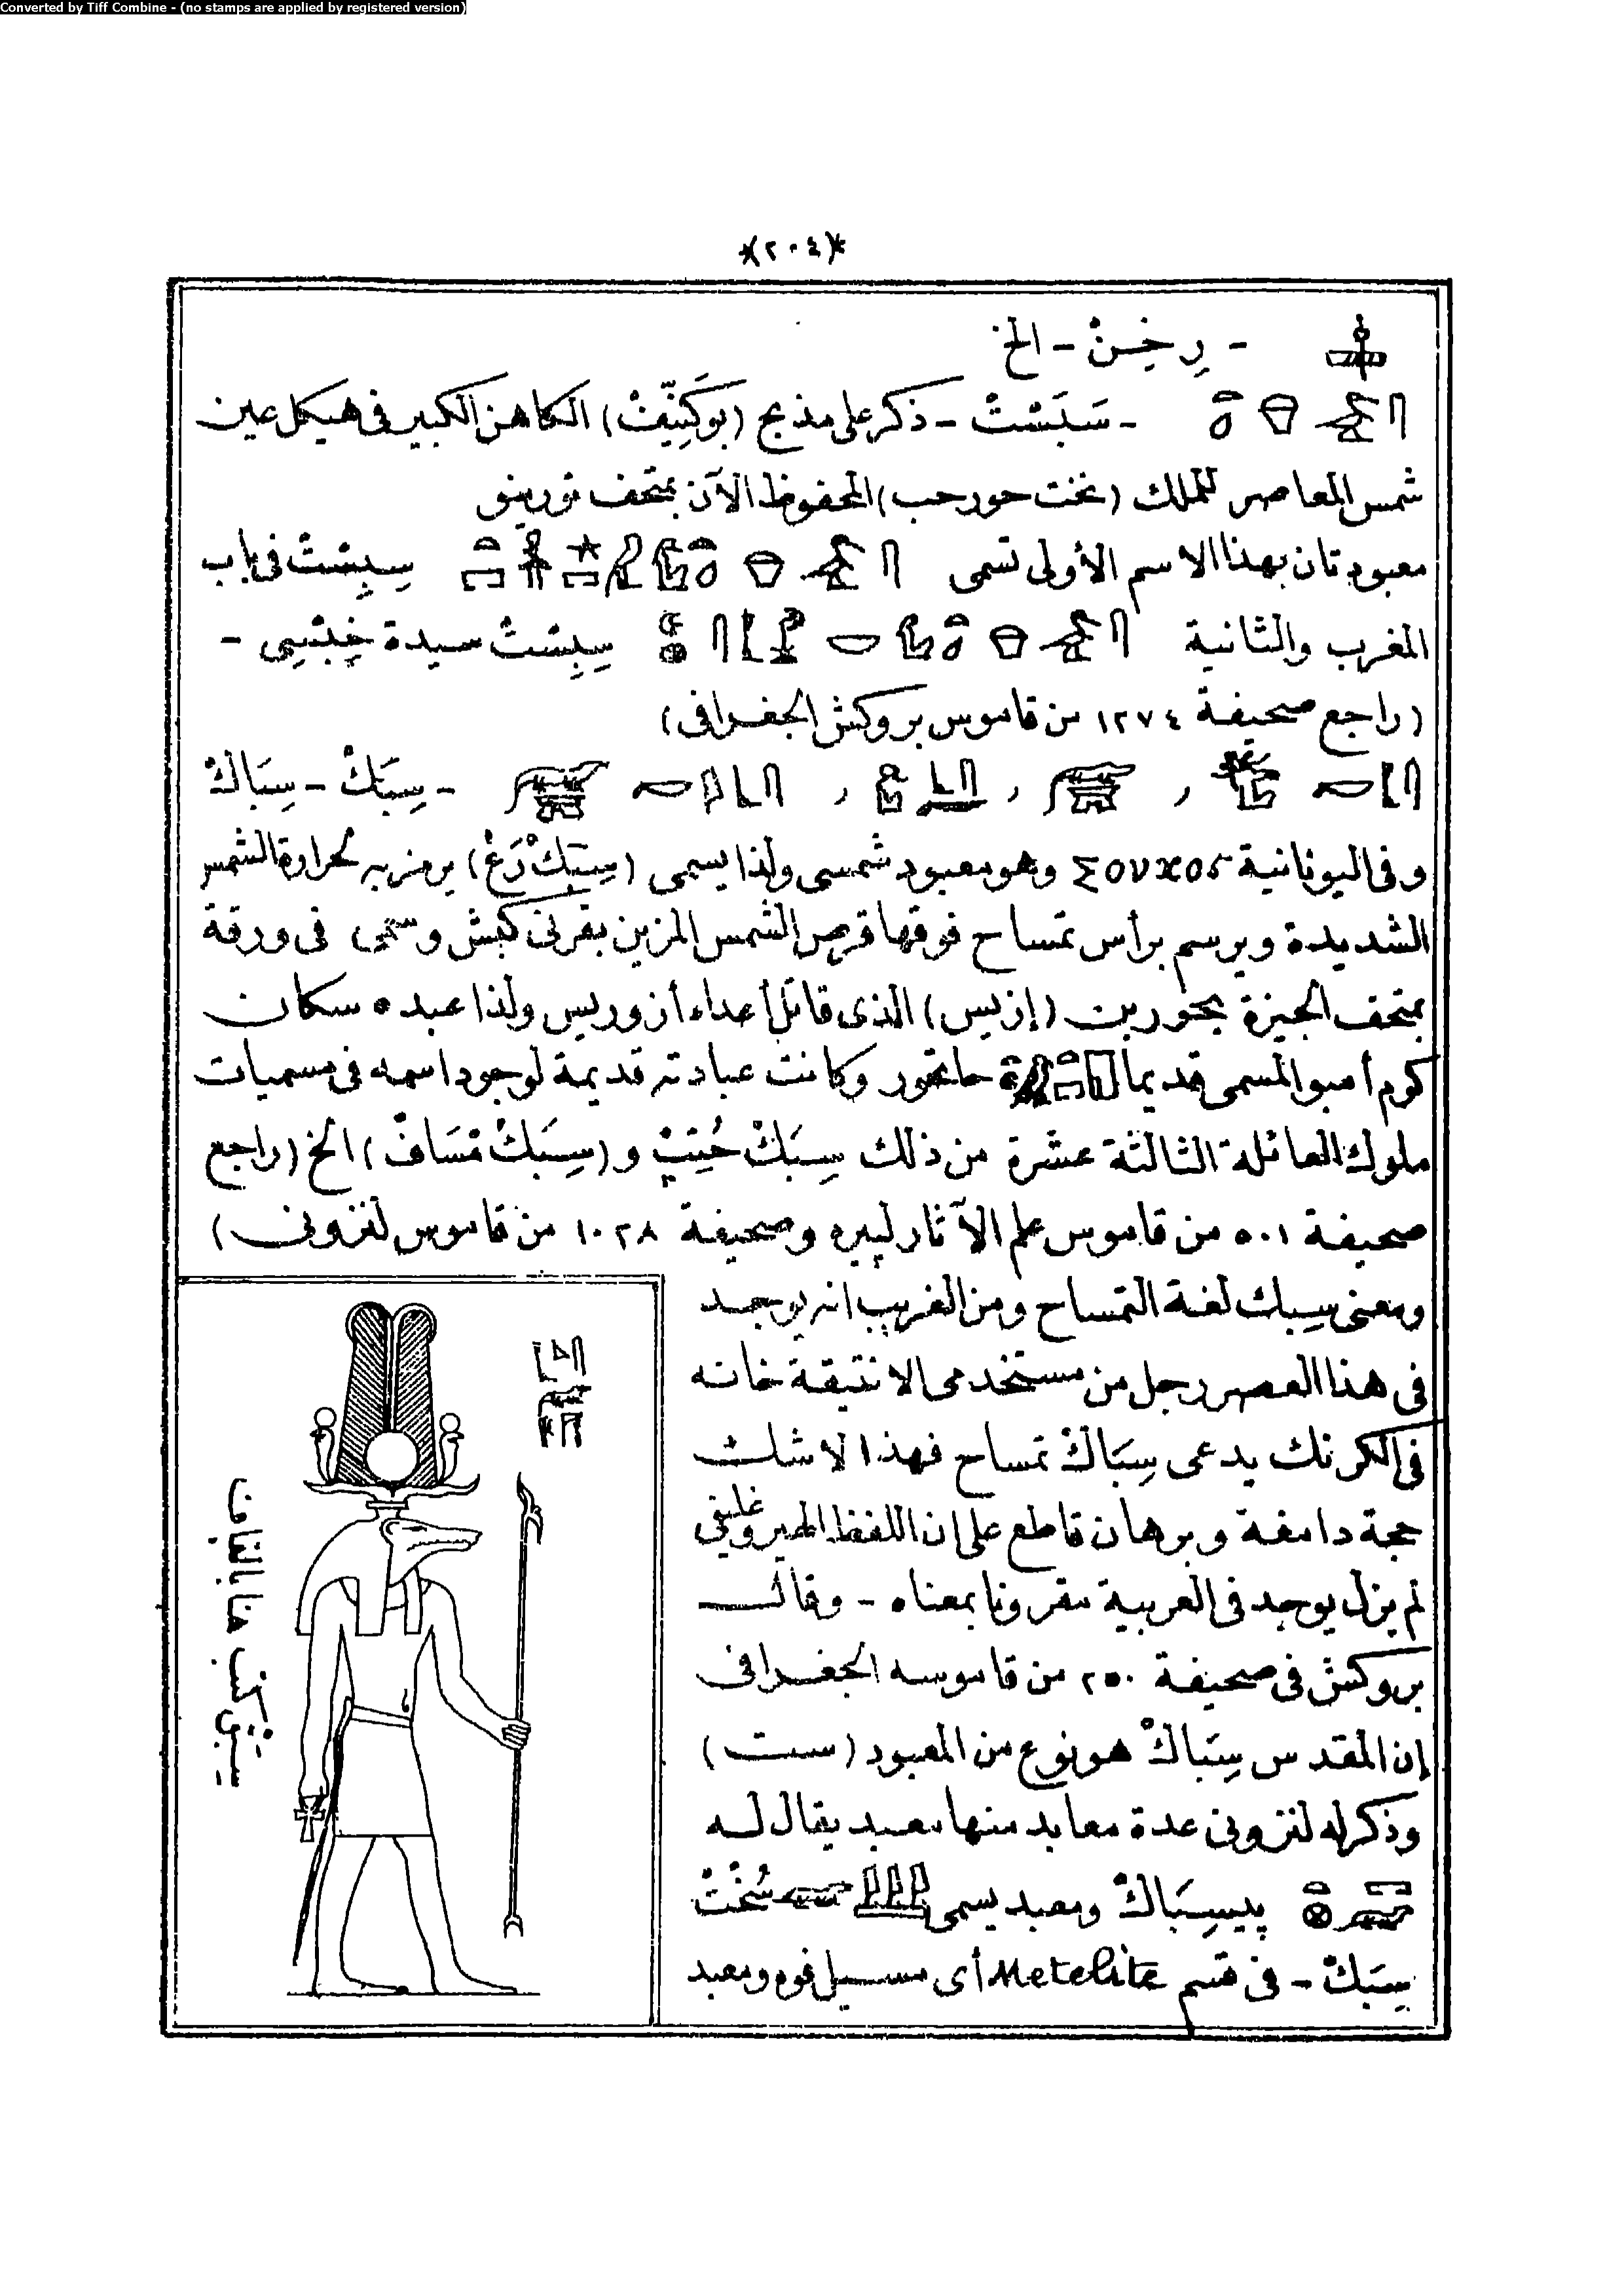 Converted by Tiff Combine - (no stamps are applied by registered version)
*(٢٠٤)*
- رِخِنْ - الخ
- سَبَشْتْ - ذكر على مذبح (بوكَنِّيفْ) الكاهن الكبير فى هيكل عين
شمس المعاصر للملك (نخت حور حب) المحفوظ الآن بمتحف تورينو
معبودتان بهذا الاسم الأولى تسمى سِبِشْتْ فى باب
المغرب والثانية سِبِشْتْ سيدة خِبْتِسِى -
(راجع صحيفة ١٢٧٤ من قاموس بروكش الجغرافى)
- سِبَكْ - سِبَاكْ
وفى اليونانية ΣΟΥΧΟς وهو معبود شمسى ولذا يسمى (سِبَكْ رَعْ) يرمز به لحرارة الشمس
الشديدة ويرسم برأس تمساح فوقها قرص الشمس المزين بقرنى كبش وسمى فى ورقة
بمتحف الجيزة بحور بن (إزيس) الذى قاتل أعداء أزوريس ولذا عبده سكان
كوم أمبو المسمى قديما حاتحور وكانت عبادته قديمة لوجود اسمه فى مسميات
ملوك العائلة الثالثة عشرة من ذلك سِبَكْ حُتِپْ و (سِبَكْ مْسَافْ) الخ (راجع
صحيفة ٥٠١ من قاموس علم الآثار لپيره وصحيفة ١٠٢٨ من قاموس لنزونى)
ومعنى سِبِك لغة التمساح ومن الغريب انه يوجد
فى هذا العصر رجل من مستخدمى الانتيقة خانه
فى الكرنك يدعى سِبَاكْ تمساح فهذا لا شك
حجة دامغة وبرهان قاطع على ان اللفظ الهيروغليفى
لم يزل يوجد فى العربية مقرونا بمعناه - وقال
بروكش فى صحيفة ٢٥٠ من قاموسه الجغرافى
إن المقدس سِبَاكْ هو نوع من المعبود (ست)
وذكر له لنزونى عدة معابد منها معبد يقال له
پيسِبَاكْ ومعبد يسمى سُخْتْ
سِبَكْ - فى قسم Metelite أى مسيل فوه ومعبد